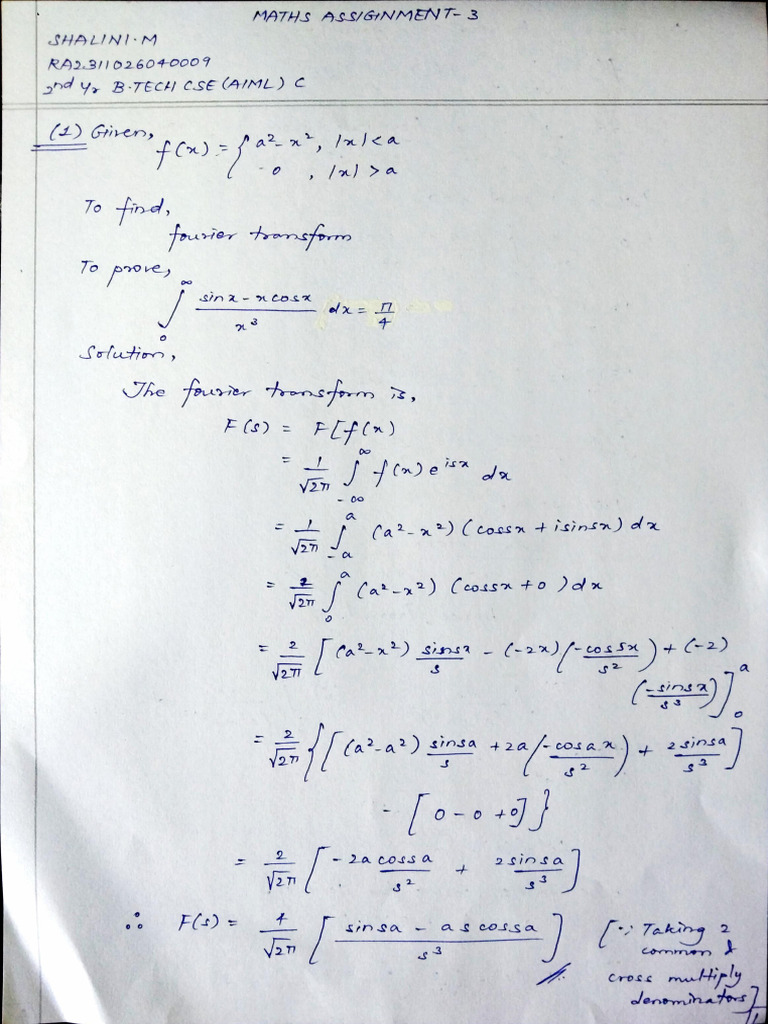 MATHS ASSIGNMENT-3
SHALINI.M
RA2311026040009
2nd Yr B.TECH CSE(AIML) C
(1) Given, f(x) = { a²-x², |x|<a
0, |x|>a
To find,
fourier transform
To prove,
∫₀^∞ (sinx-xcosx)/x³ dx = π/4
Solution,
The fourier transform is,
F(s) = F[f(x)
= 1/√2π ∫_{-∞}^{∞} f(x) e^{isx} dx
= 1/√2π ∫_{-a}^{a} (a²-x²) (cossx + isinsx) dx
= 2/√2π ∫₀^a (a²-x²) (cossx + 0) dx
= 2/√2π [(a²-x²) sinsx/s - (-2x) (-cossx/s²) + (-2)
(-sinsx/s³)]₀^a
= 2/√2π {[(a²-a²) sinsa/s + 2a (-cosax/s²) + 2sinsa/s³]
- [0-0+0]}
= 2/√2π [-2acossa/s² + 2sinsa/s³]
∴ F(s) = 4/√2π [(sinsa - as cossa)/s³] [∵ Taking 2
common &
cross multiply
denominators]